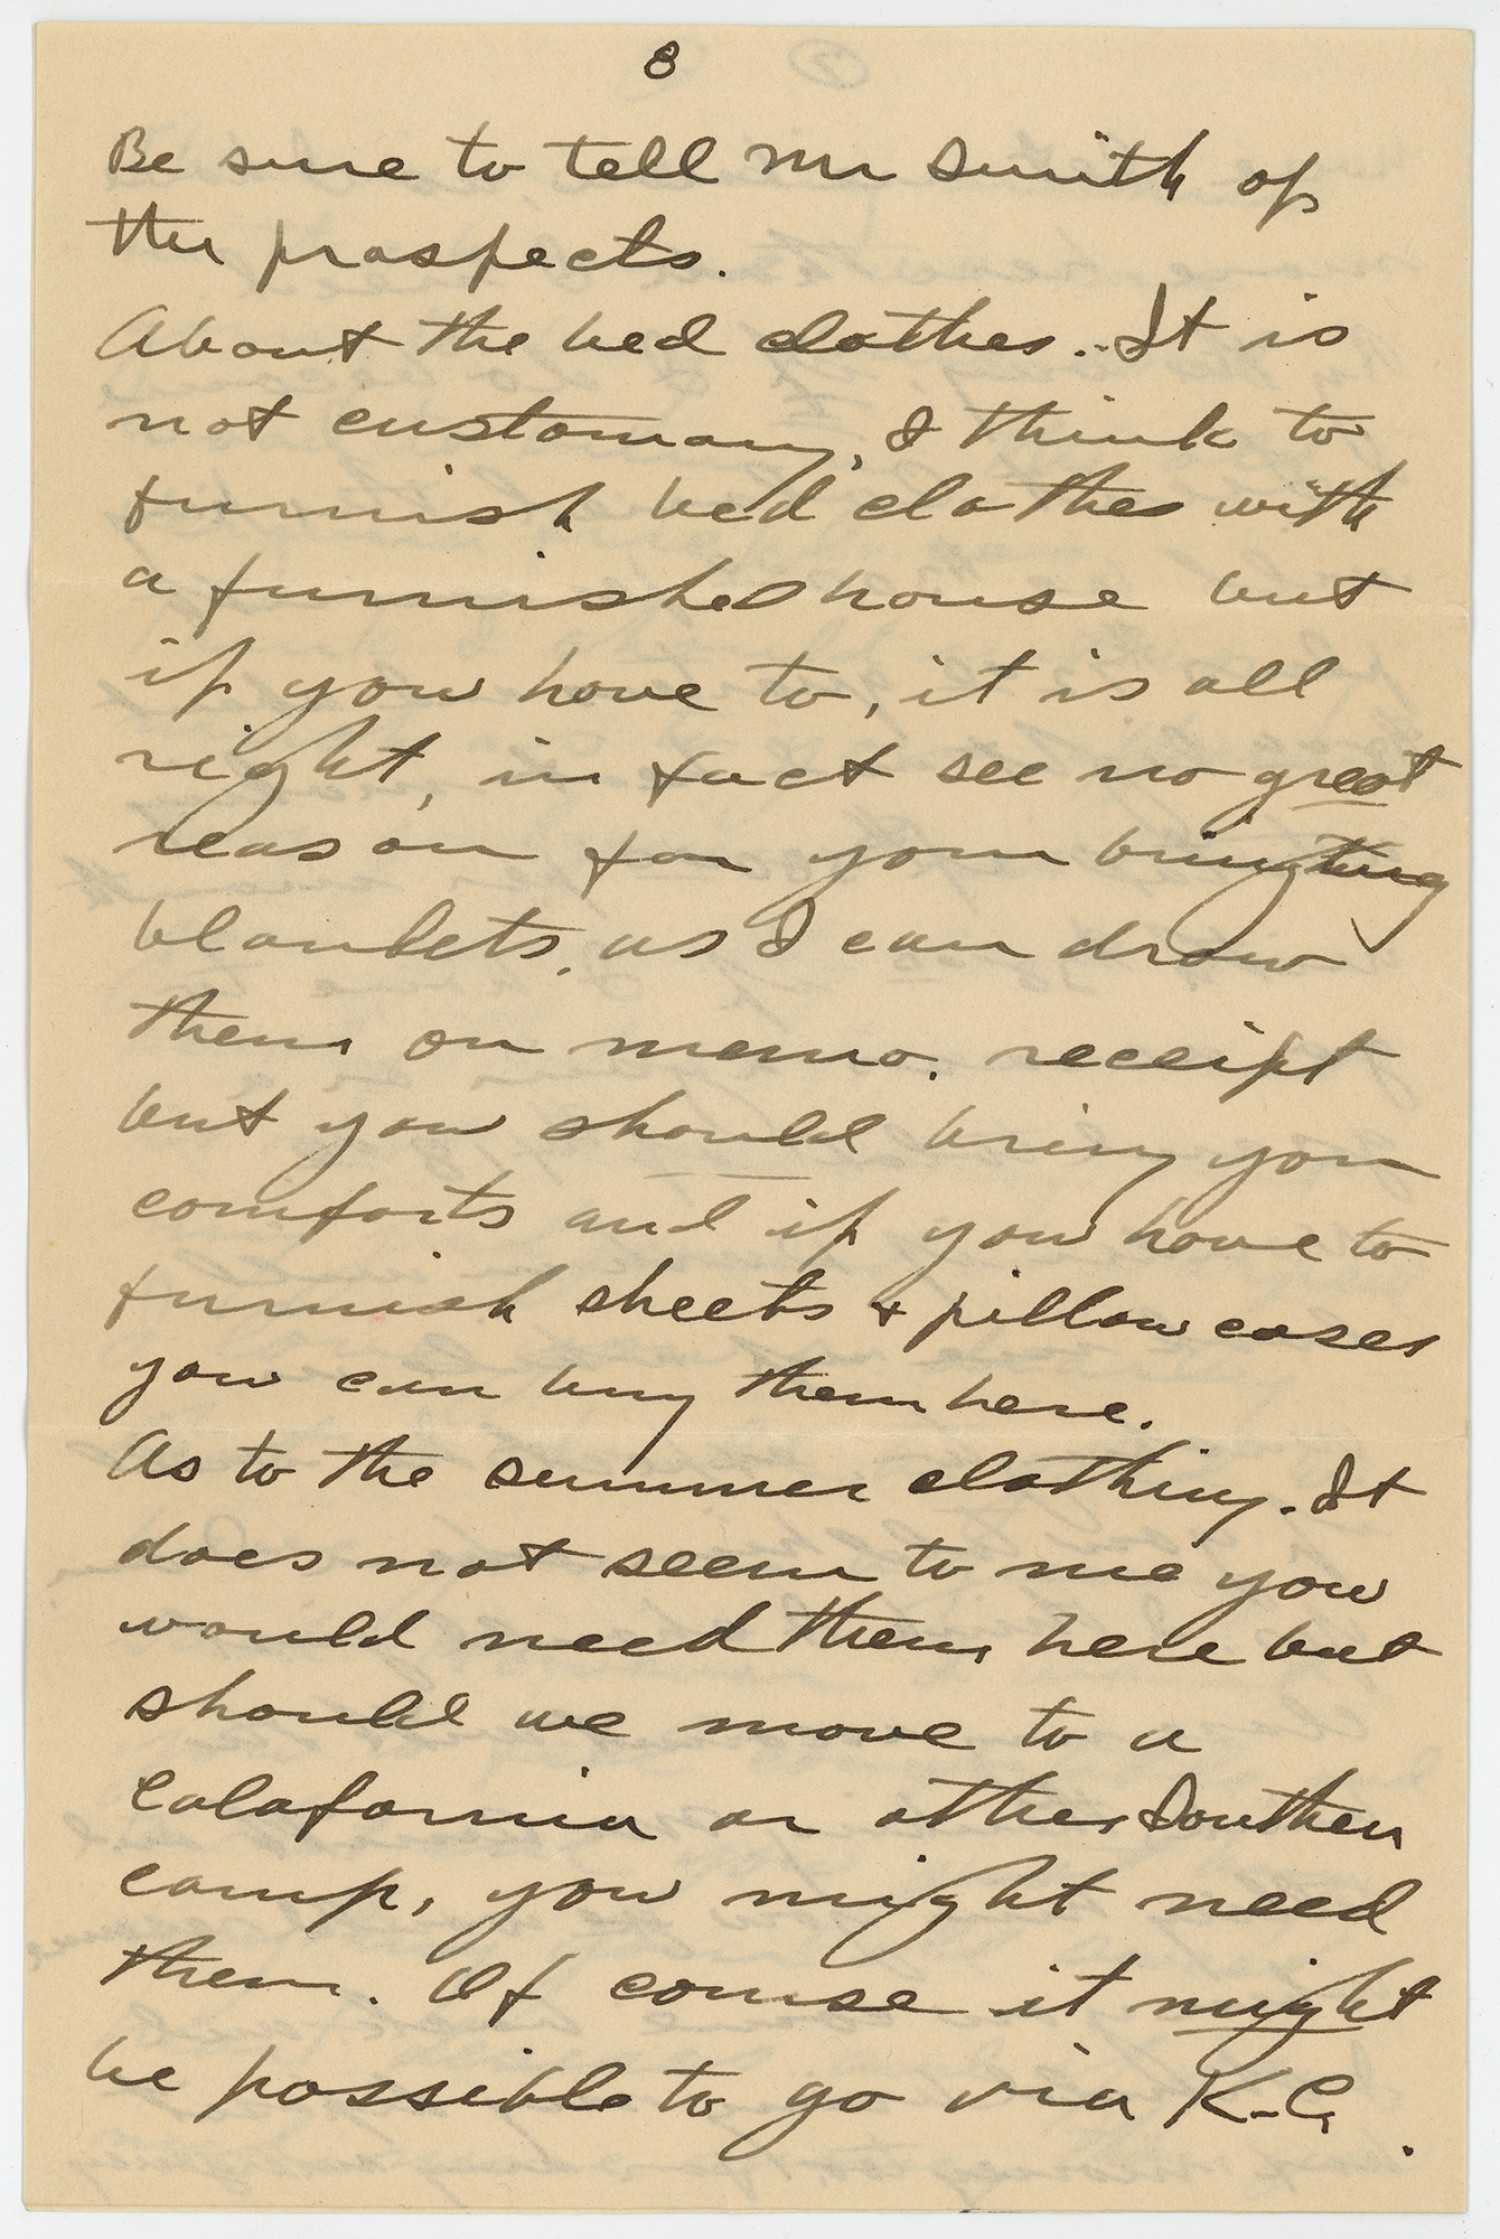 8
Be sure to tell Mr Smith of
the prospects.
About the bed clothes. It is
not customary, I think to
furnish bed clothes with
a furnished house but
if you have to, it is all
right, in fact see no great
reason for your bringing
blankets, as I can draw
them on memo. receipt
but you should bring your
comforts and if you have to
furnish sheets + pillow cases
you can buy them here.
As to the summer clothing. It
does not seem to me you
would need them here but
should we move to a
Calafornia or other Southern
camp, you might need
them. Of course it might
be possible to go via K-C.